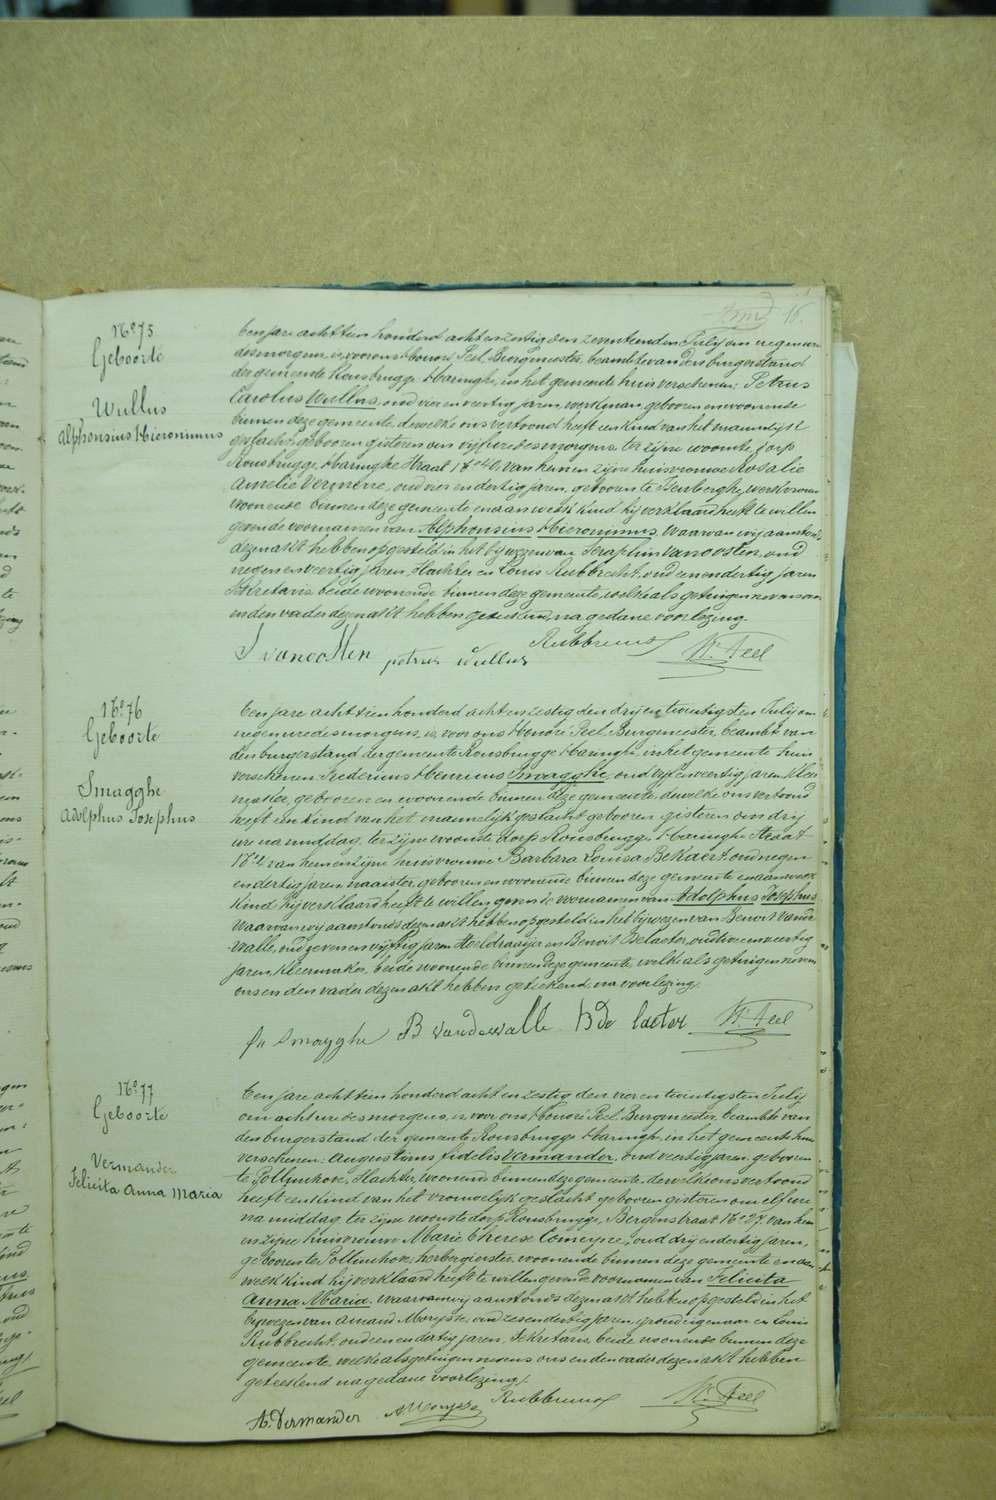 16.
No 75
Geboorte
Wullus
Alphonsius Hieronimus
Een jare achttien honderd acht en zestig den zeventienden July om negen ure
des morgens, is voor ons Honoré Feel, Burgemeester, beambte van den burgerstand
der gemeente Rousbrugge-Haringhe, in het gemeente huis verschenen: Petrus
Carolus Wullus, oud vier en veertig jaren, werkman, geboren en woonende
binnen deze gemeente, dewelke ons vertoond heeft een kind van het mannelijk
geslacht, geboren gisteren om vijf ure des morgens, ter zijne woonste, dorp
Rousbrugge-Haringhe Straat No 40, van hem en zijne huisvrouwe Rosalie
Amelie Vermerre, oud vier en dertig jaren, geboren te Isenberghe, werkvrouw
woonende binnen deze gemeente en aan welk kind hij verklaard heeft te willen
gevende voornamen van Alphonsius Hieronimus. Waarvan wij aanstonds
dezen akt hebben opgesteld in het bijwezen van Seraphin Vanoosten, oud
negen en veertig jaren, Hachter en Louis Rubbrecht, oud een en dertig jaren
Sekretaris, beide woonende binnen deze gemeente, welke als getuigen nevens ons
en den vader dezen akt hebben geteekend, na gedane voorlezing.
S vanoosten petrus Wullus Rubbrecht H. Feel
No 76
Geboorte
Smagghe
Adolphus Josephus
Een jare achttien honderd acht en zestig den drij en twintigsten July om
negen ure des morgens, is voor ons Honoré Feel, Burgemeester, beambte van
den burgerstand der gemeente Rousbrugge-Haringhe, in het gemeente huis
verschenen: Frederieus Henricus Smagghe, oud vijf en veertig jaren, kleer
maker, geboren en woonende binnen deze gemeente, dewelke ons vertoond
heeft een kind van het mannelijk geslacht geboren gisteren om drij
ure na middag, ter zijne woonste dorp Rousbrugge-Haringhe Straat
No 4, van hem en zijne huisvrouwe Barbara Louisa Bekaert, oud negen
en dertig jaren, naaister, geboren en woonende binnen deze gemeente en aan welk
kind hij verklaard heeft te willen geven de voornamen van Adolphus Josephus
Waarvan wij aanstonds dezen akt hebben opgesteld in het bijwezen van Benoit Vande
Walle, oud zeven en vijftig jaren, Stoeldraaijer en Benoit Delaeter, oud twee en veertig
jaren, kleermaker, beide woonende binnen deze gemeente, welke als getuigen neven
ons en den vader dezen akt hebben geteekend, na voorlezing.
fr Smagghe B vandewalle B De laeter H. Feel
No 77
Geboorte
Vermander
Felicita Anna Maria
Een jare achttien honderd acht en zestig den vier en twintigsten July
om acht ure des morgens, is voor ons Honoré Feel, Burgemeester, beambte van
den burgerstand der gemeente Rousbrugge-Haringhe, in het gemeente huis
verschenen: Augustinus fidelis Vermander, oud veertig jaren, geboren
te Pollinchove, Hachter, woonende binnen deze gemeente, dewelke ons vertoond
heeft een kind van het vrouwelijk geslacht geboren gisteren om elf ure
na middag, ter zijne woonste dorp Rousbrugge, Bergenstraat No 27, van hem
en zijne huisvrouwe Marie Therese Comeyne, oud drij en dertig jaren,
geboren te Pollinchove, herbergierster, woonende binnen deze gemeente en aan
welk kind hij verklaard heeft te willen geven de voornamen van Felicita
Anna Maria. Waarvan wij aanstonds dezen akt hebben opgesteld in het
bijwezen van Amand Morysse, oud zes en dertig jaren, grondeigenaar en Louis
Rubbrecht, oud een en dertig jaren, Sekretaris, beide woonende binnen deze
gemeente, welke als getuigen nevens ons en den vader dezen akt hebben
geteekend na gedane voorlezing.
A. Vermander A Morysse Rubbrecht H. Feel